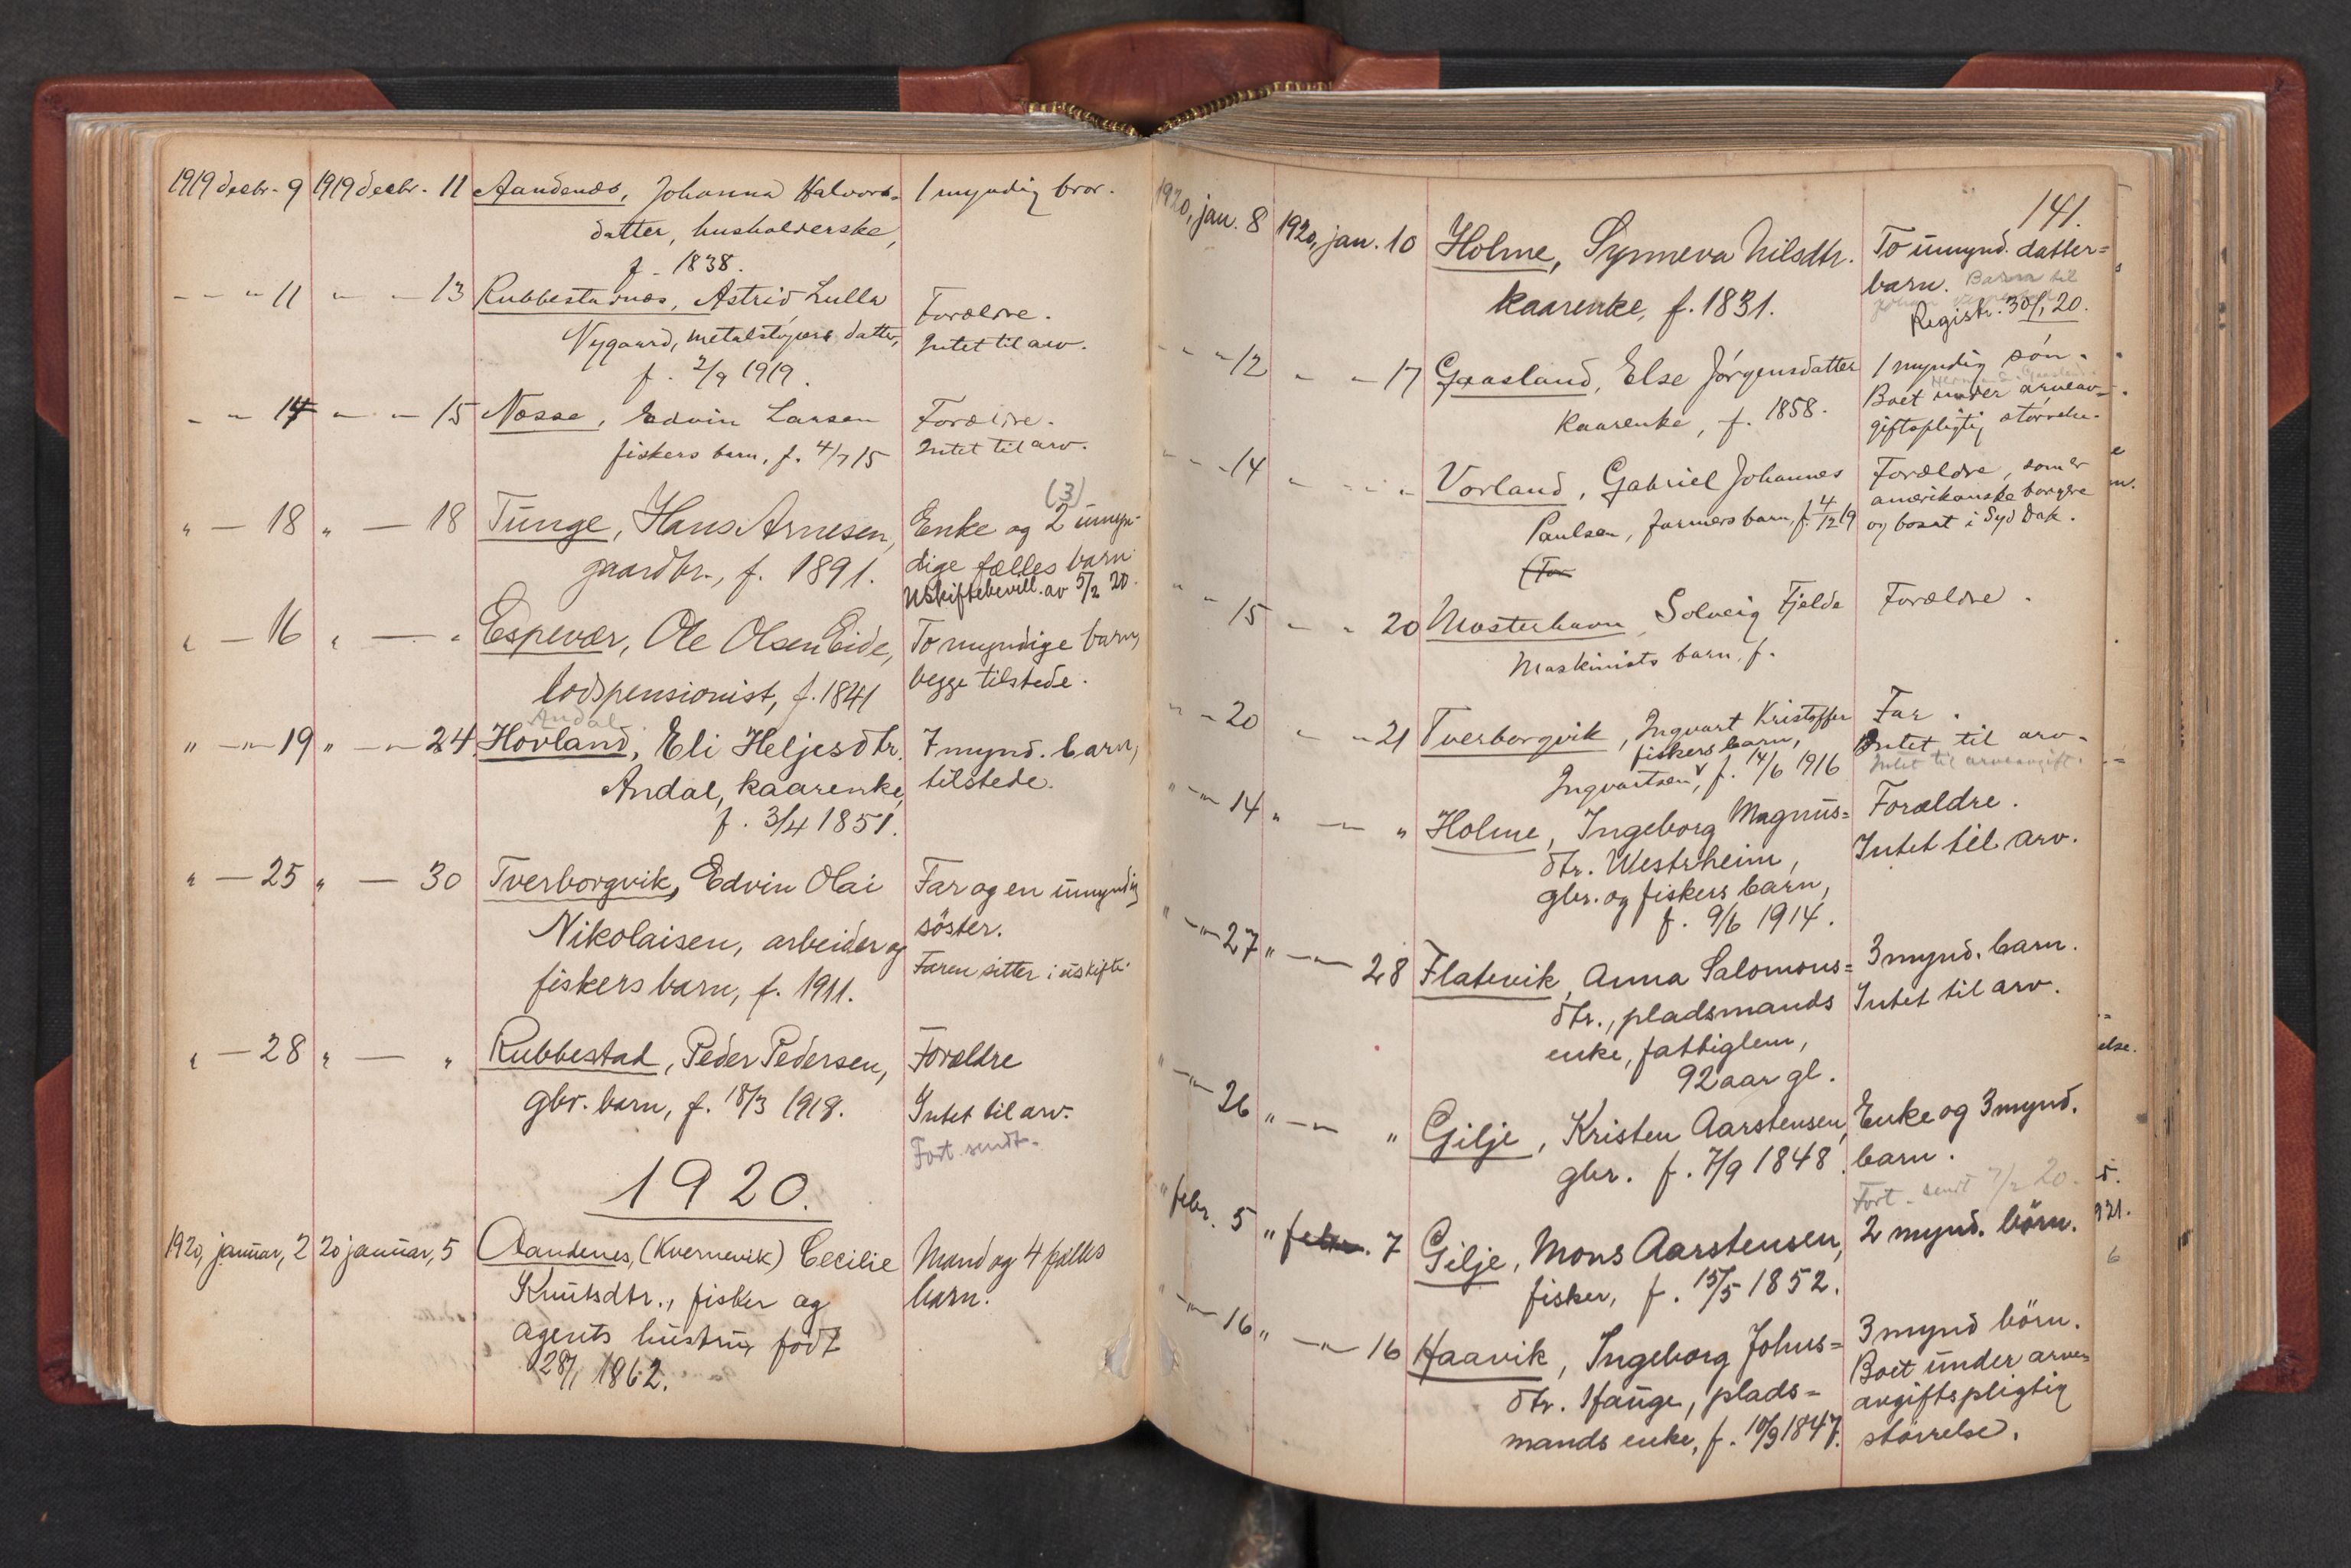 1919 decbr. 9 1919 decbr. 11 Aandenes, Johanna Halvors- 1 myndig bror.
datter, husholderske,
f. 1838.
- - " 11 " - 13 Rubbestadnes, Astrid Lulla Forældre.
Nygaard, metalstøpers datter, Intet til arv.
f. 2/9 1919.
- - 14 - - 15 Nesse, Edvin Larsen Forældre.
fiskers barn, f. 4/7 15 Intet til arv.
(3)
" - 18 " - 18 Tunge, Hans Arnesen, Enke og 2 umyn-
gaardbr., f. 1891. dige fælles barn
Uskiftebevill. av 5/2 20.
" - 16 " - " Espevær, Ole Olsen Eide, To myndige barn,
lodspensionist, f. 1841 begge tilstede.
Andal
" -"- 19 " -"- 24 Hovland, Eli Heljesdtr. 7 mynd. barn,
Andal, kaarenke, tilstede.
f. 3/4 1851.
" - 25 " - 30 Tverborgvik, Edvin Olai Far og en umyndig
Nikolaisen, arbeider og söster.
fiskers barn, f. 1911. Faren sitter i uskifte.
" - 28 " - " Rubbestad, Peder Pedersen, Forældre
gbr. barn, f. 18/3 1918. Intet til arv.
Fort. sendt.
1920.
1920, januar, 2 20 januar, 5 Aandenes, (Kvernevik) Cecilie Mand og 4 fælles
Knutsdtr., fisker og barn.
agents hustru, född
28/1 1862.
141.
1920, jan. 8 1920, jan. 10 Holme, Synneva Nilsdtr. To umynd. datter=
kaarenke, f. 1831. barn. Barn til
Registr. 30/1 20.
- - " 12 " - 17 Gaasland, Else Jörgensdatter 1 myndig sön.
kaarenke, f. 1858. Boet under arveav-
giftspligtig störrelse.
- - - 14 " - - " Vorland, Gabriel Johannes Forældre, som er
Paulsen, farmers barn, f. 4/12 19 amerikanske borgere
og bosat i Syd Dak.
(For
" - 15 " - " 20 Mosterhavn, Solveig Fjelde Forældre.
Maskinists barn, f.
" - 20 " - " 21 Tverborgvik, Ingvart Kristoffer Far.
fiskers barn, Intet til arv.
Ingvartsen, f. 14/6 1916 Intet til arveavgift.
" -"- 14 " -"- " Holme, Ingeborg Magnus= Forældre.
dtr. Westrheim, Intet til arv.
gbr. og fiskers barn,
f. 9/6 1914.
" -"- 27 " -"- 28 Flatevik, Anna Salomons= 3 mynd. barn.
dtr., pladsmands Intet til arv.
enke, fattiglem,
92 aar gl.
" -"- 26 " -"- " Gilje, Kristen Aarstensen, Enke og 3 mynd.
gbr. f. 7/9 1848. barn.
Fort. sendt 7/2 20.
" febr. 5 " febr. 7 Gilje, Mons Aarstensen, 2 mynd. börn.
fisker, f. 15/5 1852.
" -"- 16 " -"- 16 Haavik, Ingeborg Johns= 3 mynd börn.
dtr. Hauge, plads= Boet under arve=
mands enke, f. 10/9 1847. avgiftspligtig
störrelse.